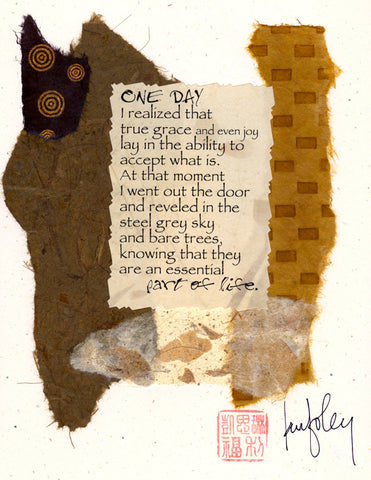 ONE DAY
I realized that
true grace and even joy
lay in the ability to
accept what is.
At that moment
I went out the door
and reveled in the
steel grey sky
and bare trees,
knowing that they
are an essential
part of life.
foley